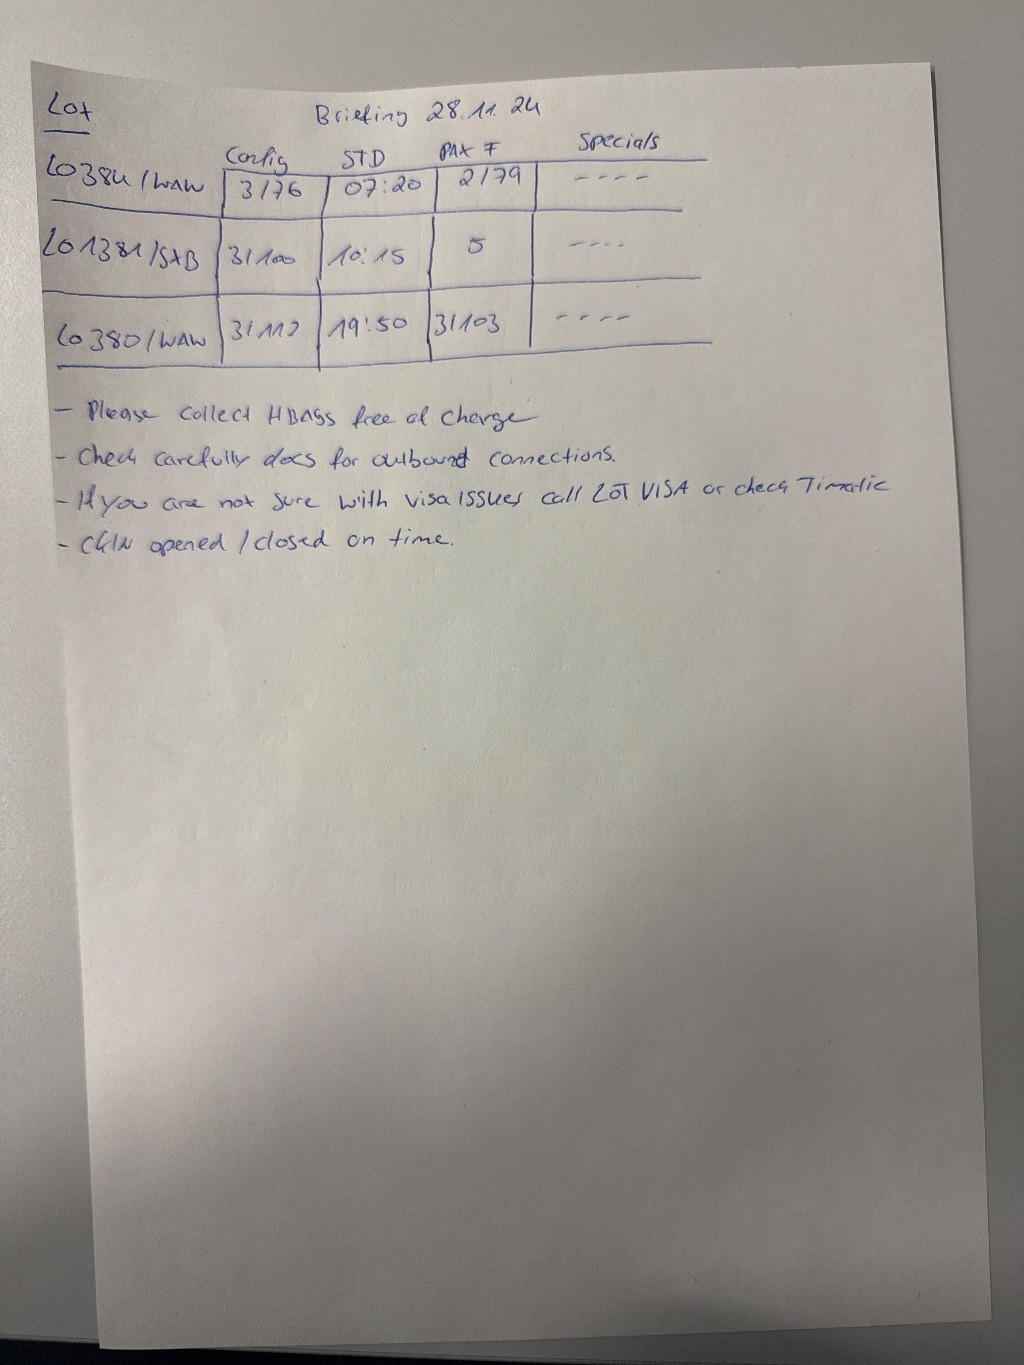 Lot
Briefing 28.11.24
Config STD PAX F Specials
LO384/WAW 3/76 07:20 2/79 ----
LO1381/SXB 3/100 10:15 5 ----
LO380/WAW 3/112 19:50 3/103 ----
- Please collect HBAGS free of charge
- Check carefully docs for outbound connections.
- If you are not sure with visa issues call LOT VISA or check Timatic
- CKIN opened / closed on time.